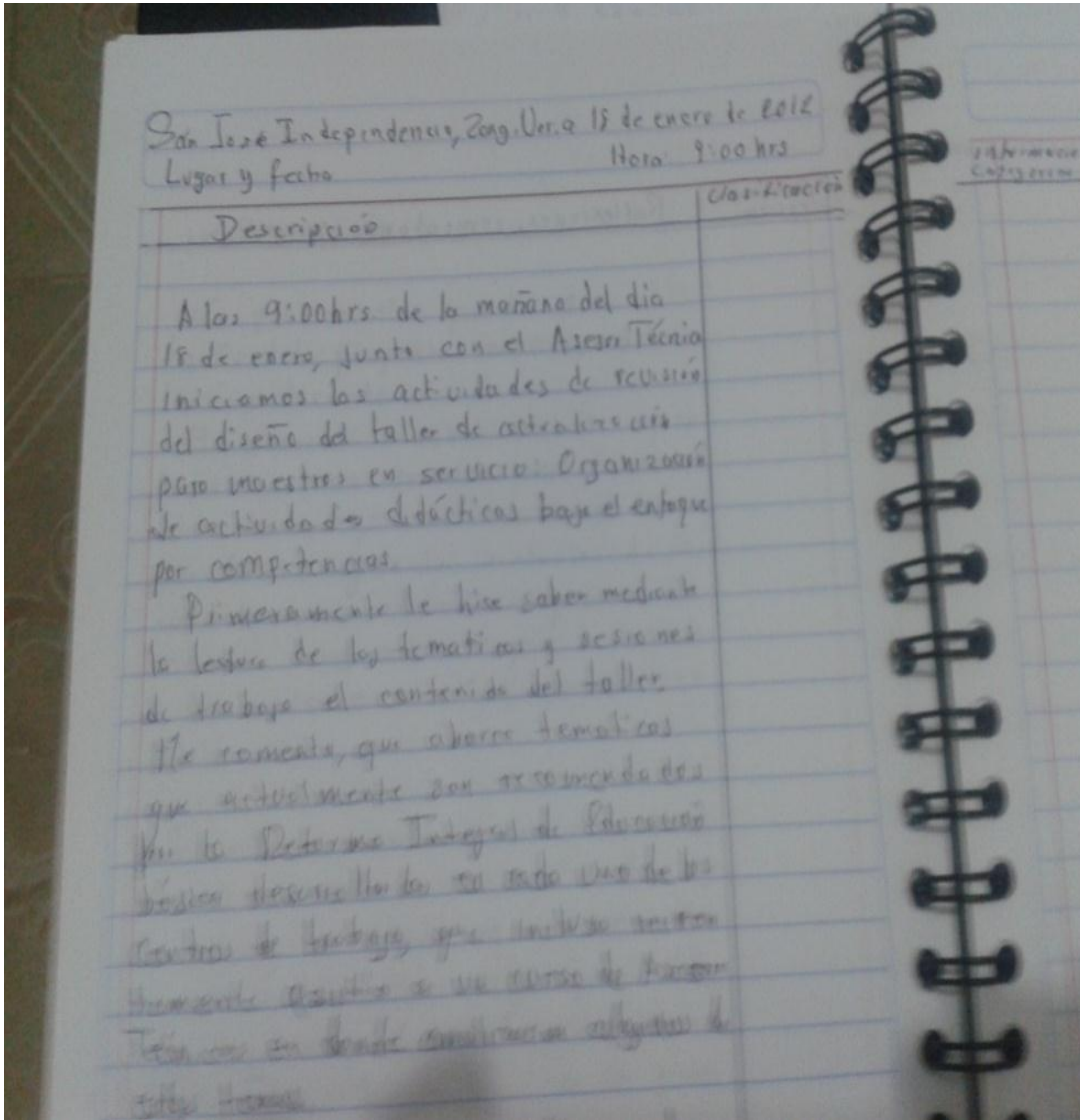 San José Independencia, Zong. Ver. a 18 de enero de 2012
Lugar y fecha Hora 9:00 hrs
Descripción Clasificación
A las 9:00hrs de la mañana del dia
18 de enero, junto con el Asesor Técnico
iniciamos las actividades de revisión
del diseño del taller de actualización
para maestros en servicio: Organización
de actividades didácticas bajo el enfoque
por competencias.
Primeramente le hise saber mediante
la lectura de las tematicas y sesiones
de trabajo el contenido del taller.
Me comenta, que abarca tematicas
que actualmente son recomendadas
por la Reforma Integral de Educación
básica desarrolladas en cada uno de los
Centros de trabajo, que incluso
a un curso de
en donde
estos temas